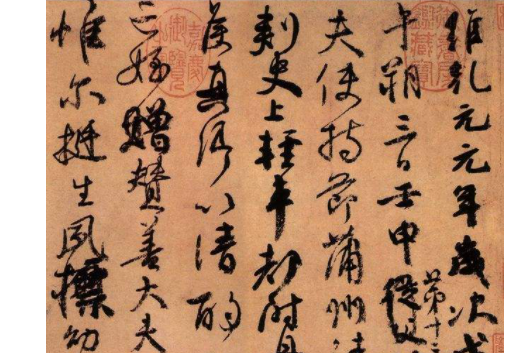 維乾元元年歲次戊
午朔三日壬申從父
第十三
夫使持節蒲州諸
刺史上輕車都尉丹
侯真卿以清酌
亡姪贈贊善大夫
惟爾挺生夙標幼